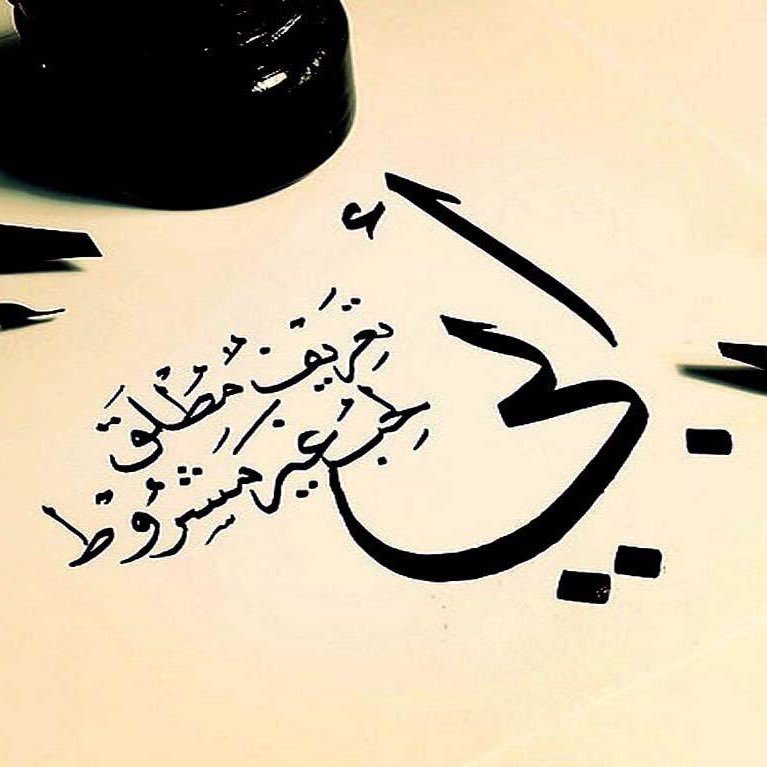 أبي
تعريف مُطْلَق
لِحُب غير مَشرُوط